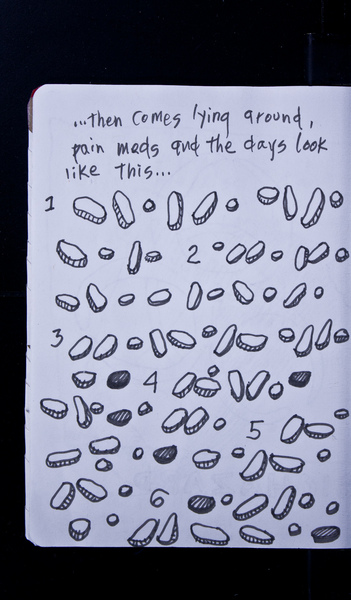 ...then comes lying around,
pain meds and the days look
like this...
1
2
3
4
5
6